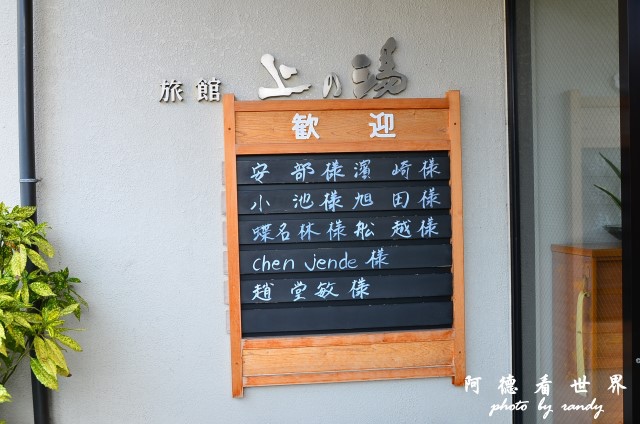 旅館 上の湯
歓迎
安部様 濱崎様
小池様 旭田様
蝶名林様 舩越様
chen jende 様
趙堂敏様
阿德看世界
photo by randy